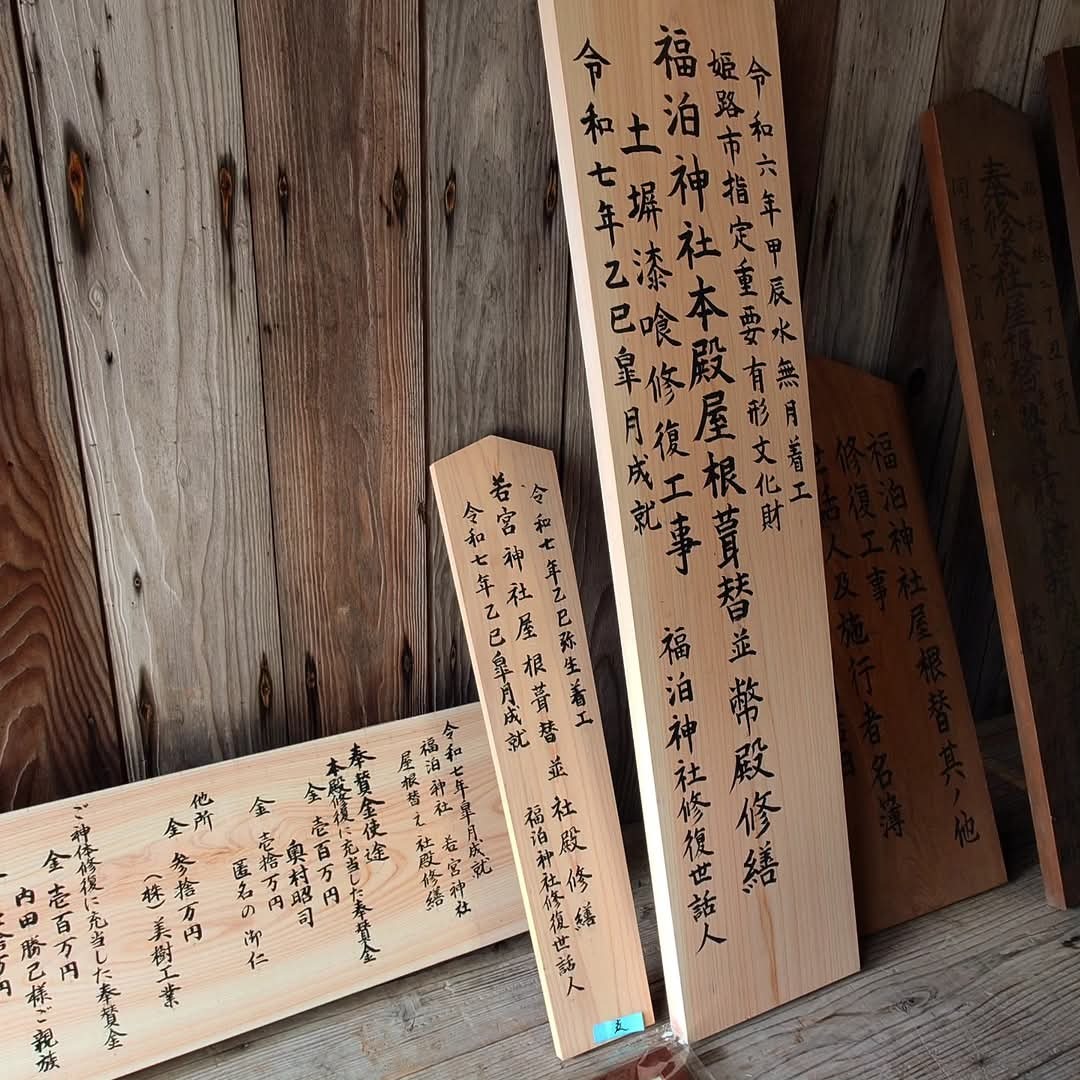 令和六年甲辰水無月着工
姫路市指定重要有形文化財
福泊神社本殿屋根葺替並幣殿修繕
土塀漆喰修復工事 福泊神社修復世話人
令和七年乙巳皐月成就
令和七年乙巳弥生着工
若宮神社屋根葺替並社殿修繕
福泊神社修復世話人
令和七年乙巳皐月成就
令和七年皐月成就
福泊神社 若宮神社
屋根替え 社殿修繕
奉賛金使途
本殿修復に充当した奉賛金
金 壱百万円
奥村昭司
金 壱拾万円
匿名の御仁
他所
金 参拾万円
(株)美樹工業
ご神体修復に充当した奉賛金
金 壱百万円
内田勝己様ご親族
福泊神社屋根替其ノ他
修復工事
施行者名簿
世話人及
奉修本社屋根